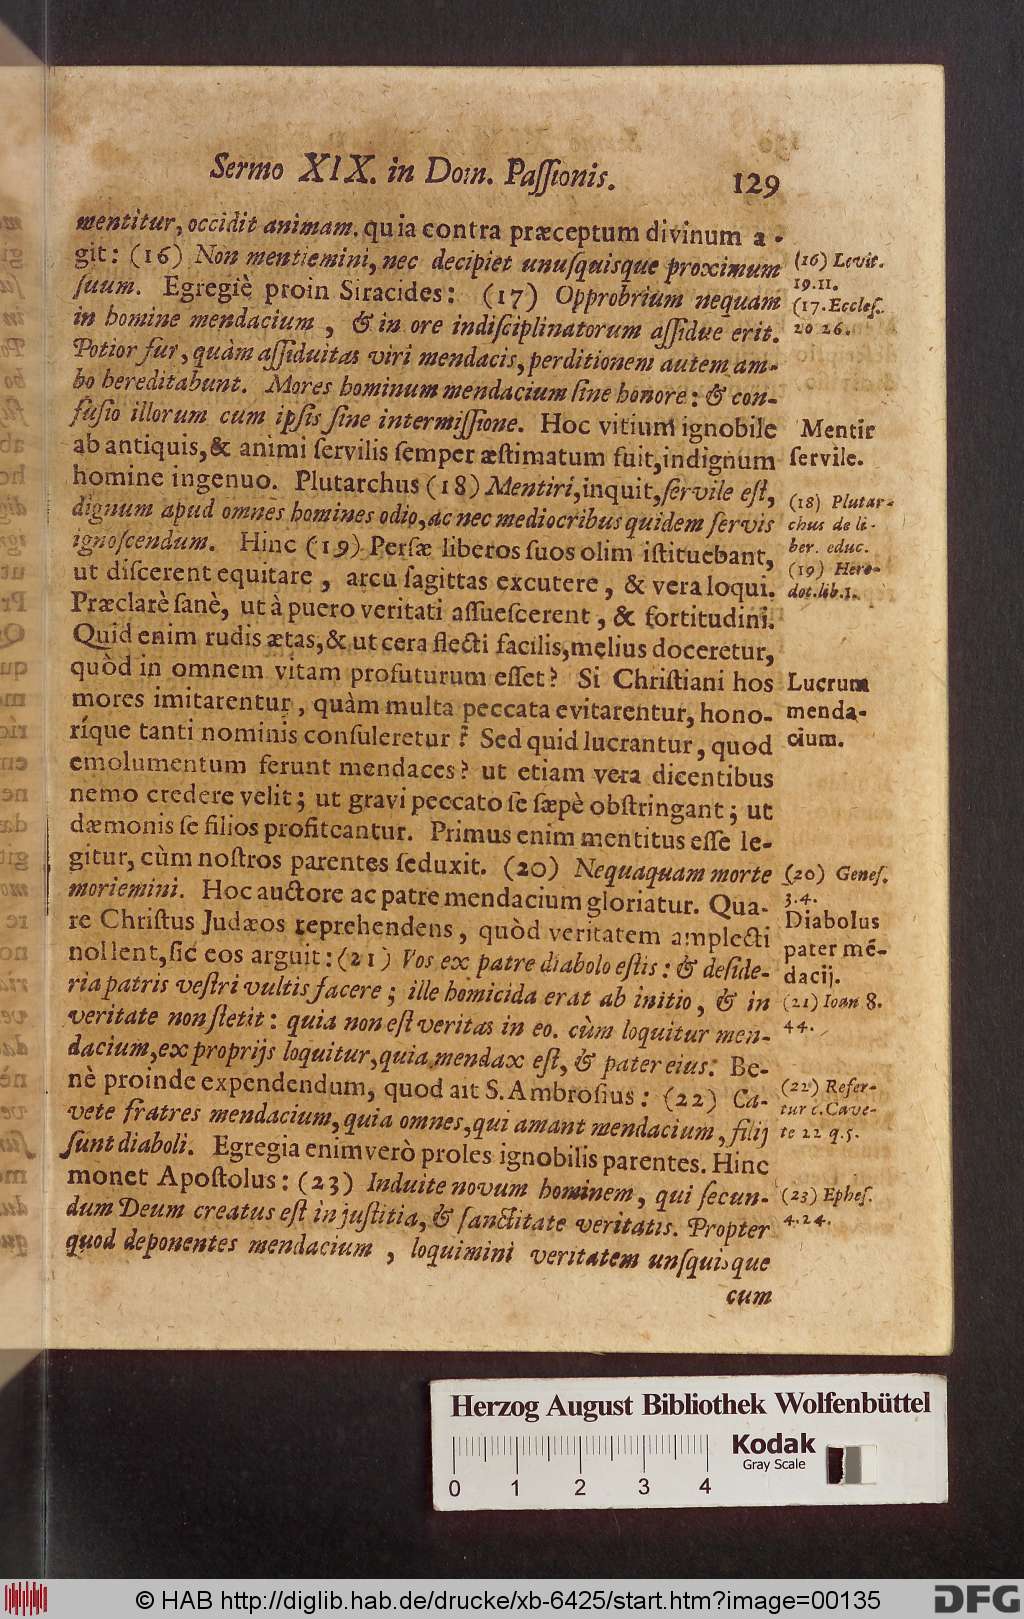 Sermo XIX. in Dom. Paſſionis. 129
mentitur, occidit animam. quia contra præceptum divinum a-
git: (16) Non mentiemini, nec decipiet unuſquisque proximum
ſuum. Egregiè proin Siracides: (17) Opprobrium nequam
in homine mendacium, & in ore indiſciplinatorum aſſidue erit.
Potior fur, quàm aſſiduitas viri mendacis, perditionem autem am-
bo hereditabunt. Mores hominum mendacium ſine honore: & con-
fuſio illorum cum ipſis ſine intermiſſione. Hoc vitium ignobile
ab antiquis, & animi ſervilis ſemper æſtimatum fuit, indignum
homine ingenuo. Plutarchus (18) Mentiri, inquit, ſervile eſt,
dignum apud omnes homines odio, ac nec mediocribus quidem ſervis
ignoſcendum. Hinc (19) Perſæ liberos ſuos olim iſtituebant,
ut diſcerent equitare, arcu ſagittas excutere, & vera loqui.
Præclarè ſanè, ut à puero veritati aſſueſcerent, & fortitudini.
Quid enim rudis ætas, & ut cera flecti facilis, melius doceretur,
quòd in omnem vitam profuturum eſſet? Si Chriſtiani hos
mores imitarentur, quàm multa peccata evitarentur, hono-
ríque tanti nominis conſuleretur? Sed quid lucrantur, quod
emolumentum ferunt mendaces? ut etiam vera dicentibus
nemo credere velit; ut gravi peccato ſe ſæpè obſtringant; ut
dæmonis ſe filios profiteantur. Primus enim mentitus eſſe le-
gitur, cùm noſtros parentes ſeduxit. (20) Nequaquam morte
moriemini. Hoc auctore ac patre mendacium gloriatur. Qua-
re Chriſtus Judæos reprehendens, quòd veritatem amplecti
nollent, ſic eos arguit: (21) Vos ex patre diabolo eſtis: & deſide-
ria patris veſtri vultis facere; ille homicida erat ab initio, & in
veritate non ſtetit: quia non eſt veritas in eo. cùm loquitur men-
dacium, ex proprijs loquitur, quia mendax eſt, & pater eius. Be-
nè proinde expendendum, quod ait S. Ambroſius: (22) Ca-
vete fratres mendacium, quia omnes, qui amant mendacium, filij
ſunt diaboli. Egregia enimverò proles ignobilis parentes. Hinc
monet Apoſtolus: (23) Induite novum hominem, qui ſecun-
dum Deum creatus eſt in juſtitia, & ſanctitate veritatis. Propter
quod deponentes mendacium, loquimini veritatem unſquisque
cum
(16) Levit.
19.11.
(17. Eccleſ.
20 26.
Mentir
ſervile.
(18) Plutar-
chus de li-
ber. educ.
(19) Hero-
dot. lib. 1.
Lucrum
menda-
cium.
(20) Geneſ.
3.4.
Diabolus
pater mē-
dacij.
(21) Ioan 8.
44.
(22) Refer-
tur c. Cave-
te 22 q. 5.
(23) Epheſ.
4.24.
Herzog August Bibliothek Wolfenbüttel
0 1 2 3 4
Kodak
Gray Scale
© HAB http://diglib.hab.de/drucke/xb-6425/start.htm?image=00135
DFG